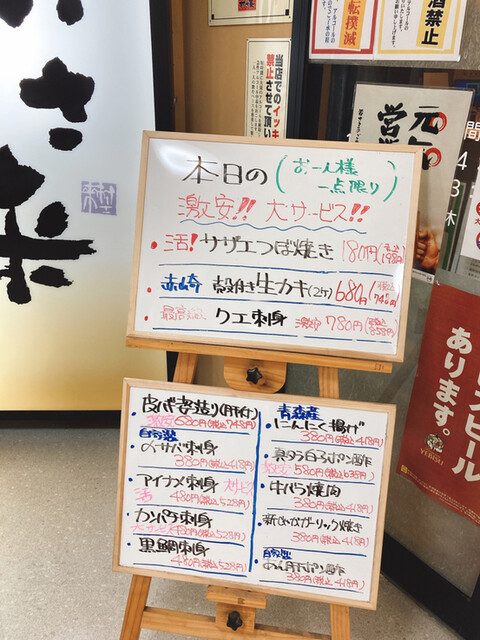 本日の(お一人様
一点限り)
激安!! 大サービス!!
・活! サザエつぼ焼き 180円(税込198円)
殻付き生カキ(2ヶ) 680円(税込748円)
・クエ刺身 激安 780円(税込858円)
激安 680円(税込748円)
自家製
〆サバ刺身
380円(税込418円)
・アイナメ刺身 大サービス
活 480円(税込528円)
・カンパチ刺身
大サービス 480円(税込528円)
・黒鯛刺身
480円(税込528円)
青森産
・にんにく揚げ
380円(税込418円)
・真タラ白子ポン酢
激安 580円(税込635円)
・牛バラ焼肉
380円(税込418円)
・新じゃがガーリック焼き
380円(税込418円)
自家製
・あん肝ポン酢
380円(税込418円)
当店でのイッキ
禁止させて頂い
転撲滅
酒禁止
元
営
ビール
あります。
YEBISU